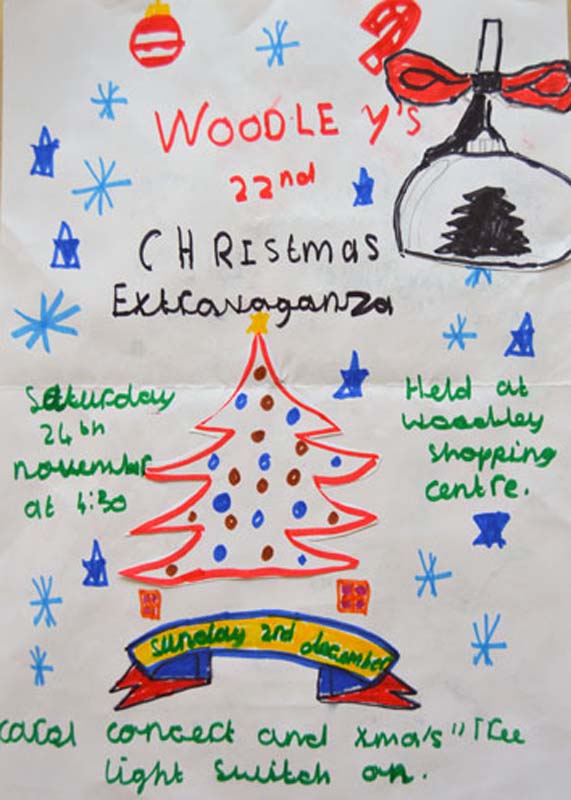 WOODLEY's
22nd
CHRistmas
Extravaganza
Saturday
24th
november
at 4:30
Held at
woodley
shopping
centre.
sunday 2nd december
carol concert and xma's "Tree
light switch on.